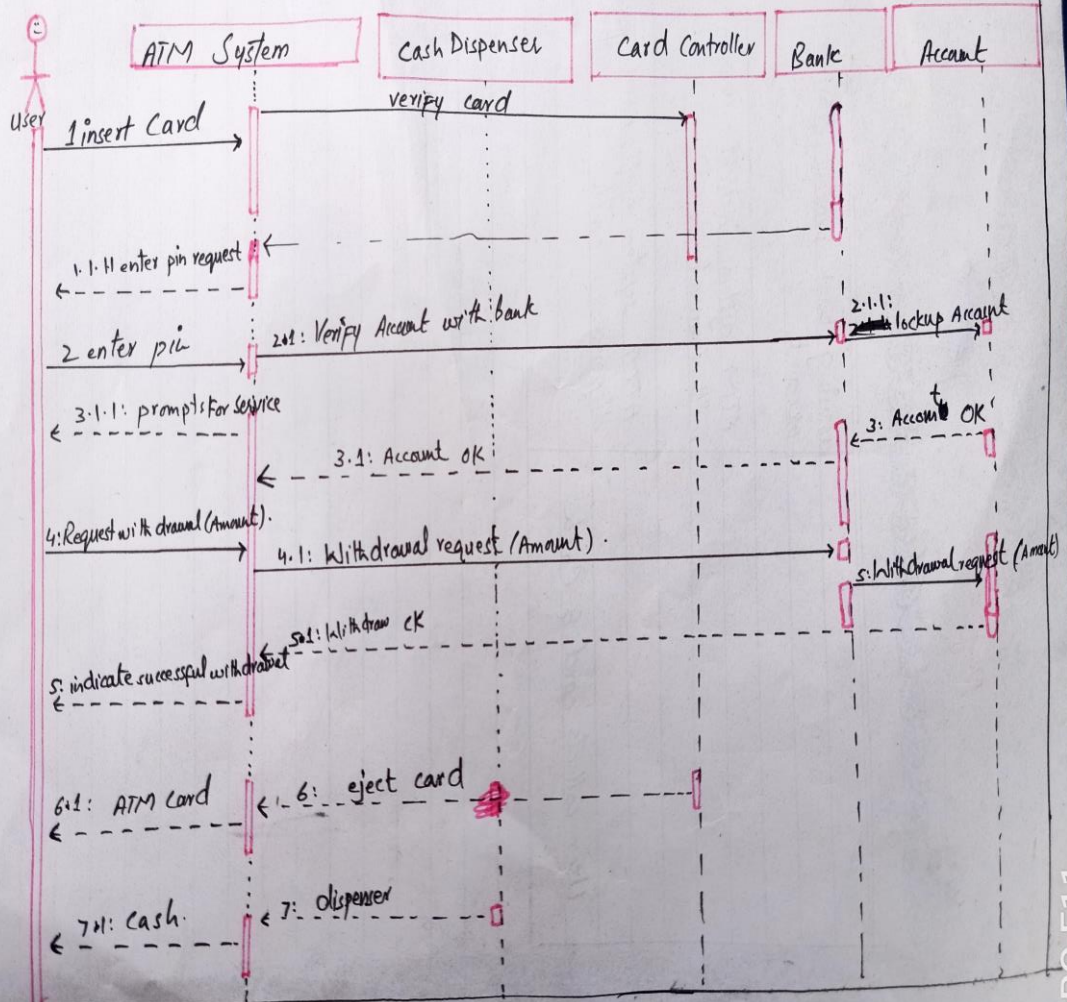 ATM System
Cash Dispenser
Card Controller
Bank
Account
User
verify card
1 insert Card
1.1.1 enter pin request
2 enter pin
2.1: Verify Account with bank
2.1.1:
lockup Account
3.1.1: prompts for service
3: Account OK
3.1: Account OK
4: Request withdrawal (Amount).
4.1: Withdrawal request (Amount).
5: Withdrawal request (Amount)
5.1: Withdraw ok
5: indicate successful withdrawal
6: eject card
6.1: ATM Card
7: dispenser
7.1: Cash.